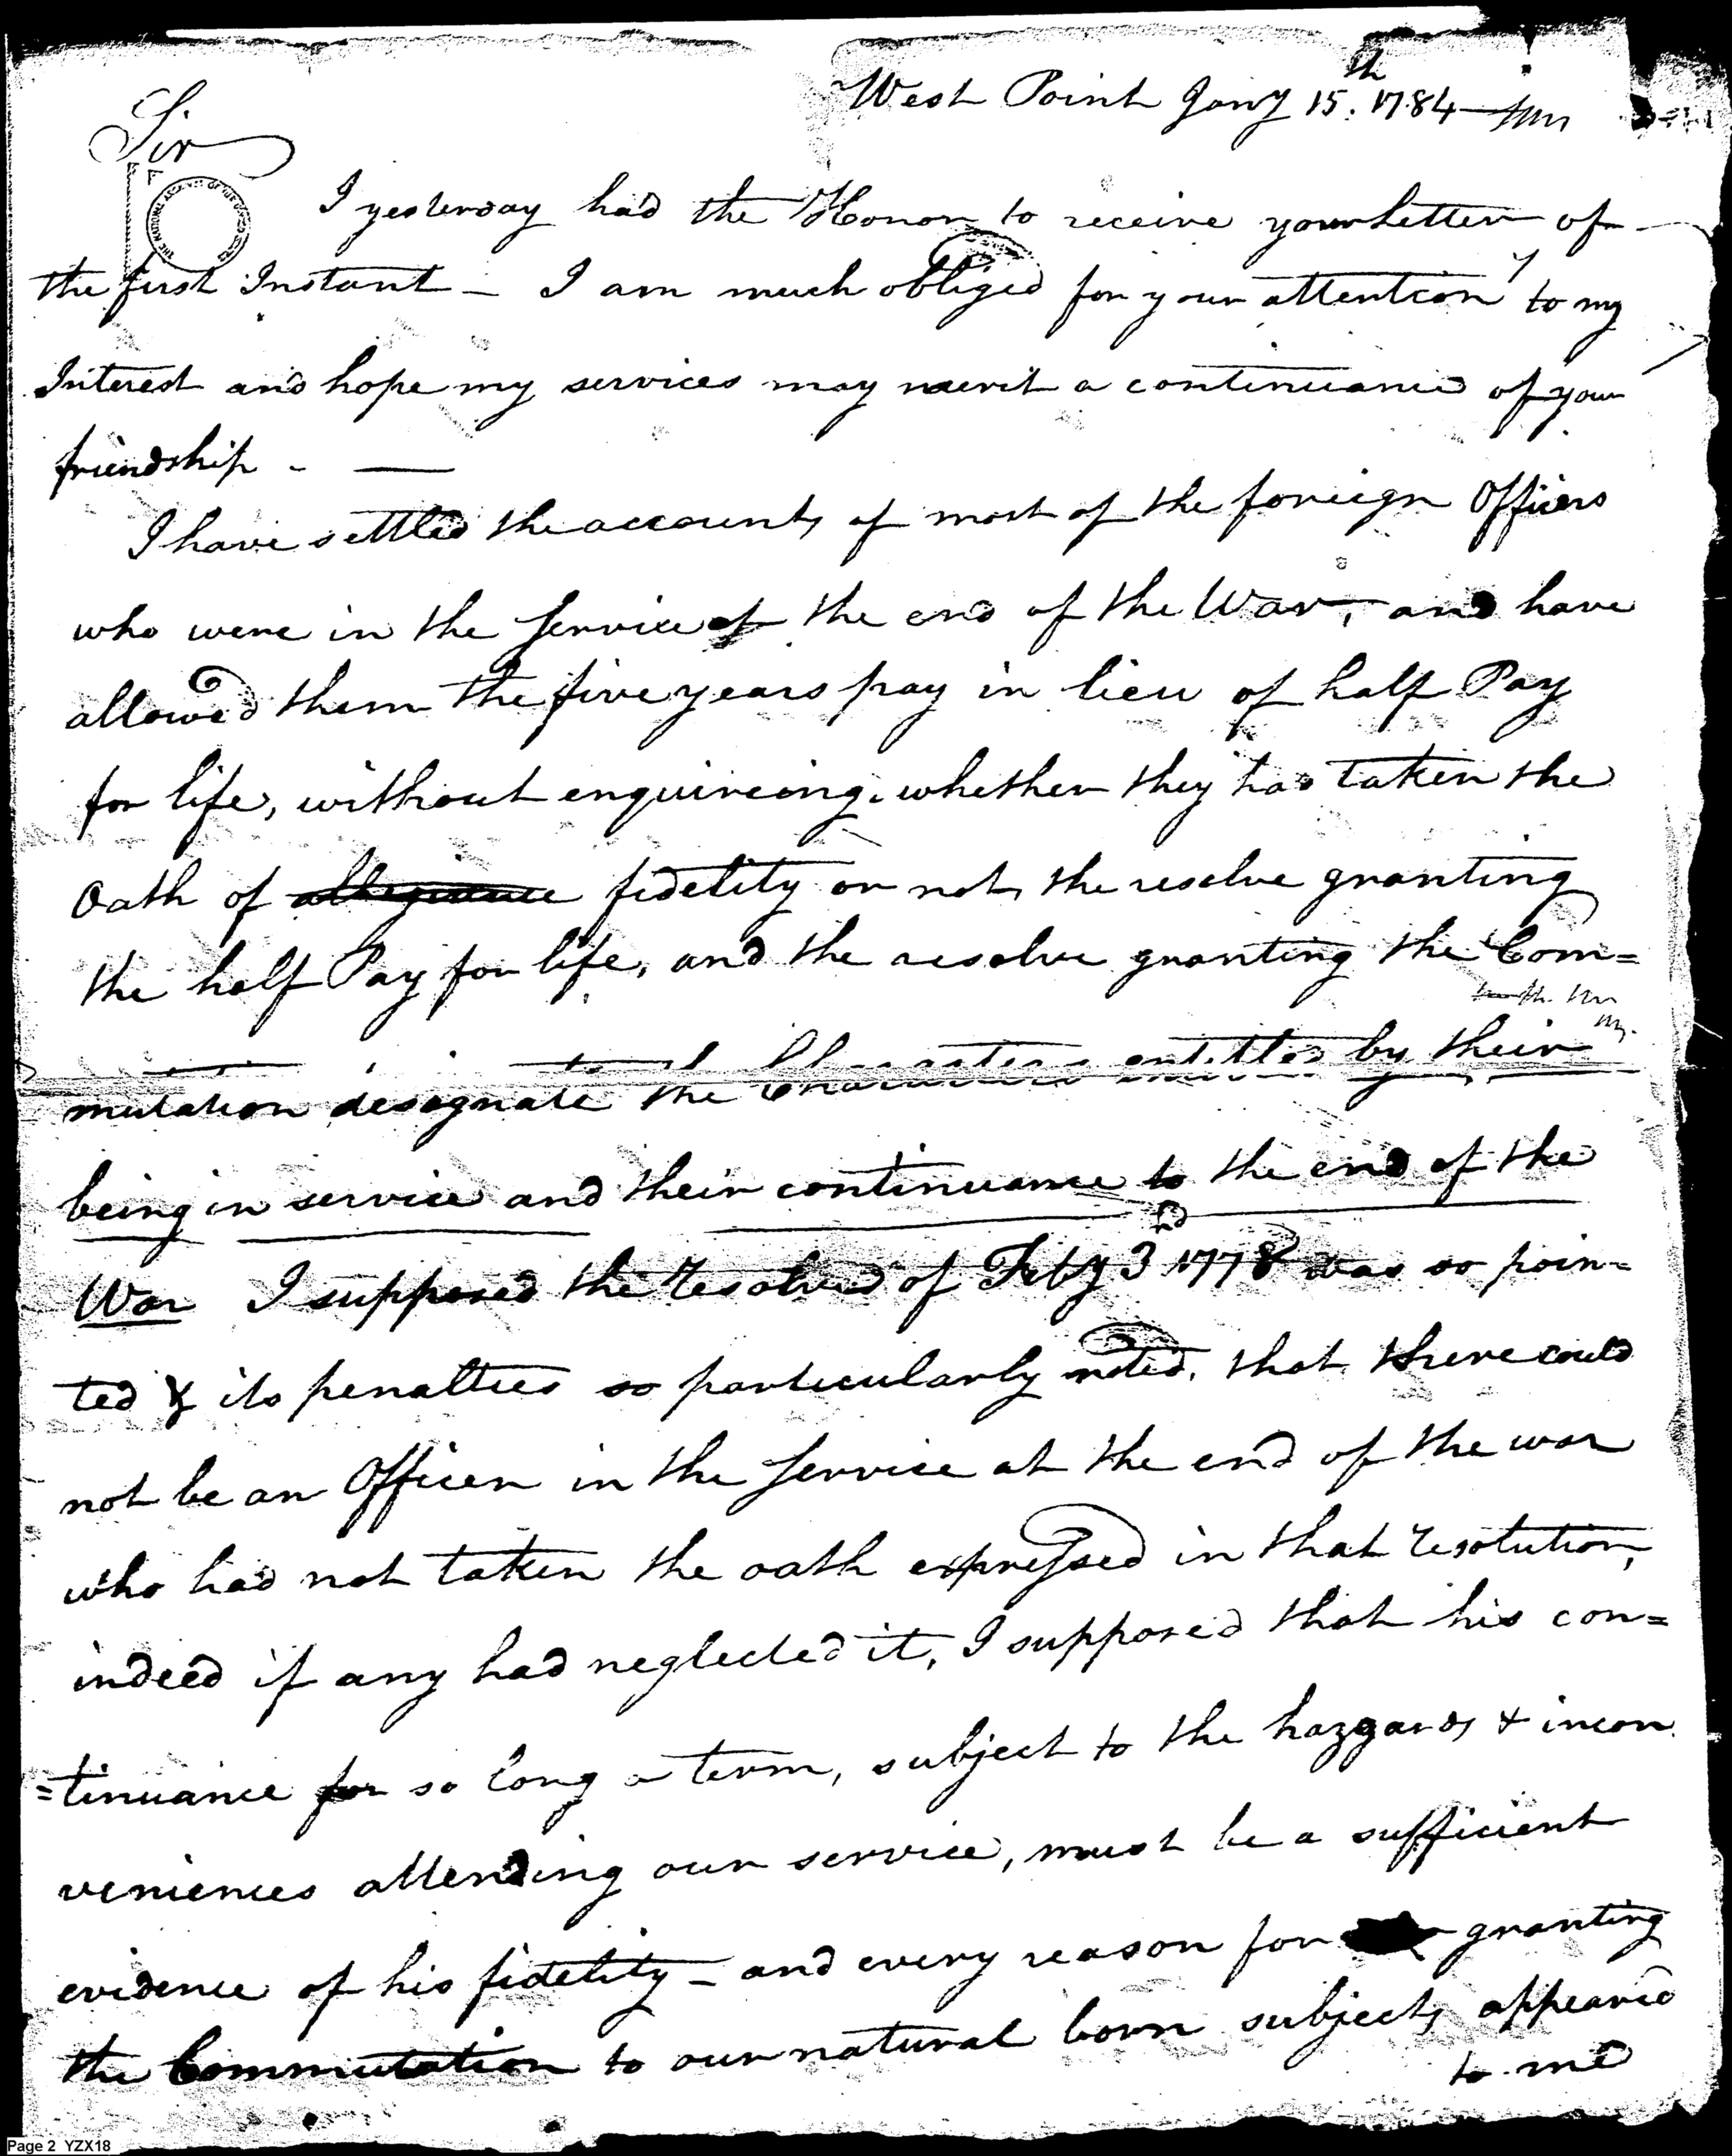 West Point Jany 15th. 1784
Sir
I yesterday had the Honor to receive your Letter of
the first Instant — I am much obliged for your attention to my
Interest and hope my services may merit a continuance of your
friendship - —
I have settled the accounts of most of the foreign Officers
who were in the Service at the end of the War, and have
allowed them the five years pay in lieu of half Pay
for life, without enquireing, whether they had taken the
Oath of allegiance fidelity or not, the resolve granting
the half Pay for life, and the resolve granting the Com=
mutation designate the Characters entitled by their
being in service and their continuance to the end of the
War I supposed the resolve of Feby 3d 1778 was so poin=
ted & its penalties so particularly noted, that there could
not be an Officer in the Service at the end of the war
who had not taken the oath expressed in that resolution,
indeed if any had neglected it, I supposed that his con=
=tinuance for so long a term, subject to the hazzards & incon
veniences attending our service, must be a sufficient
evidence of his fidelity — and every reason for granting
the Commutation to our natural born subjects appeared
to me
Page 2 YZX18